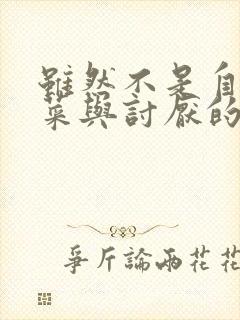 雖然不是自
菜與討厭的
爭斤論兩花花